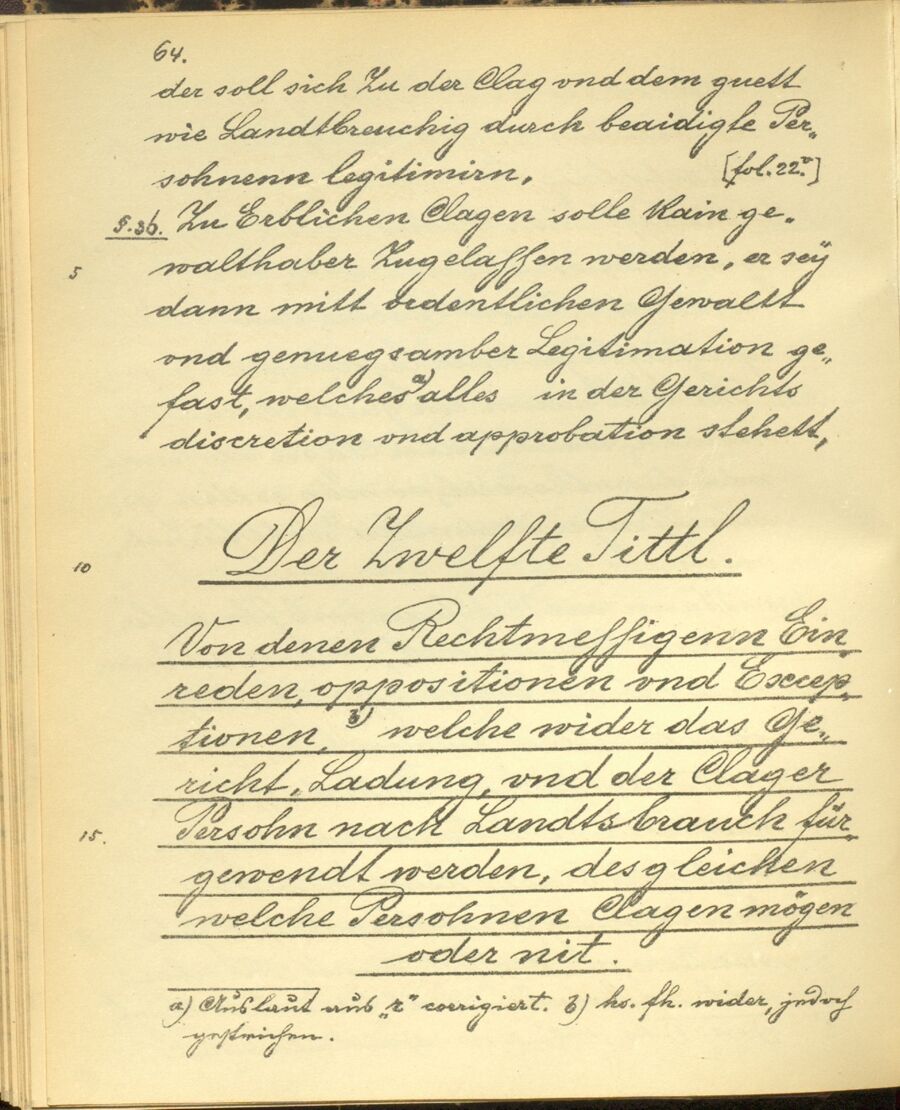 64.
der soll sich Zu der Clag vnd dem guett
wie Landtbreuchig durch beaidigte Per„
sohnenn legitimirn, [fol. 22.v]
§. 36. Zu Erblichen Clagen solle kain ge„
5 walthaber Zugelassen werden, er seÿ
dann mitt ordentlichen Gewaltt
vnd genuegsamber Legitimation ge„
fast, welches a) alles in der Gerichts
discretion vnd approbation stehett,
10 Der Zwelfte Tittl.
Von denen Rechtmessigenn Ein„
reden, oppositionen vnd Excep„
tionen, b) welche wider das Ge„
richt, Ladung, vnd der Clager
15. Persohn nach Landtsbrauch für„
gewendt werden, desgleichen
welche Persohnen Clagen mögen
oder nit.
a) Auslaut aus „r“ corrigiert. b) hs. fh. wider, jedoch
gestrichen.